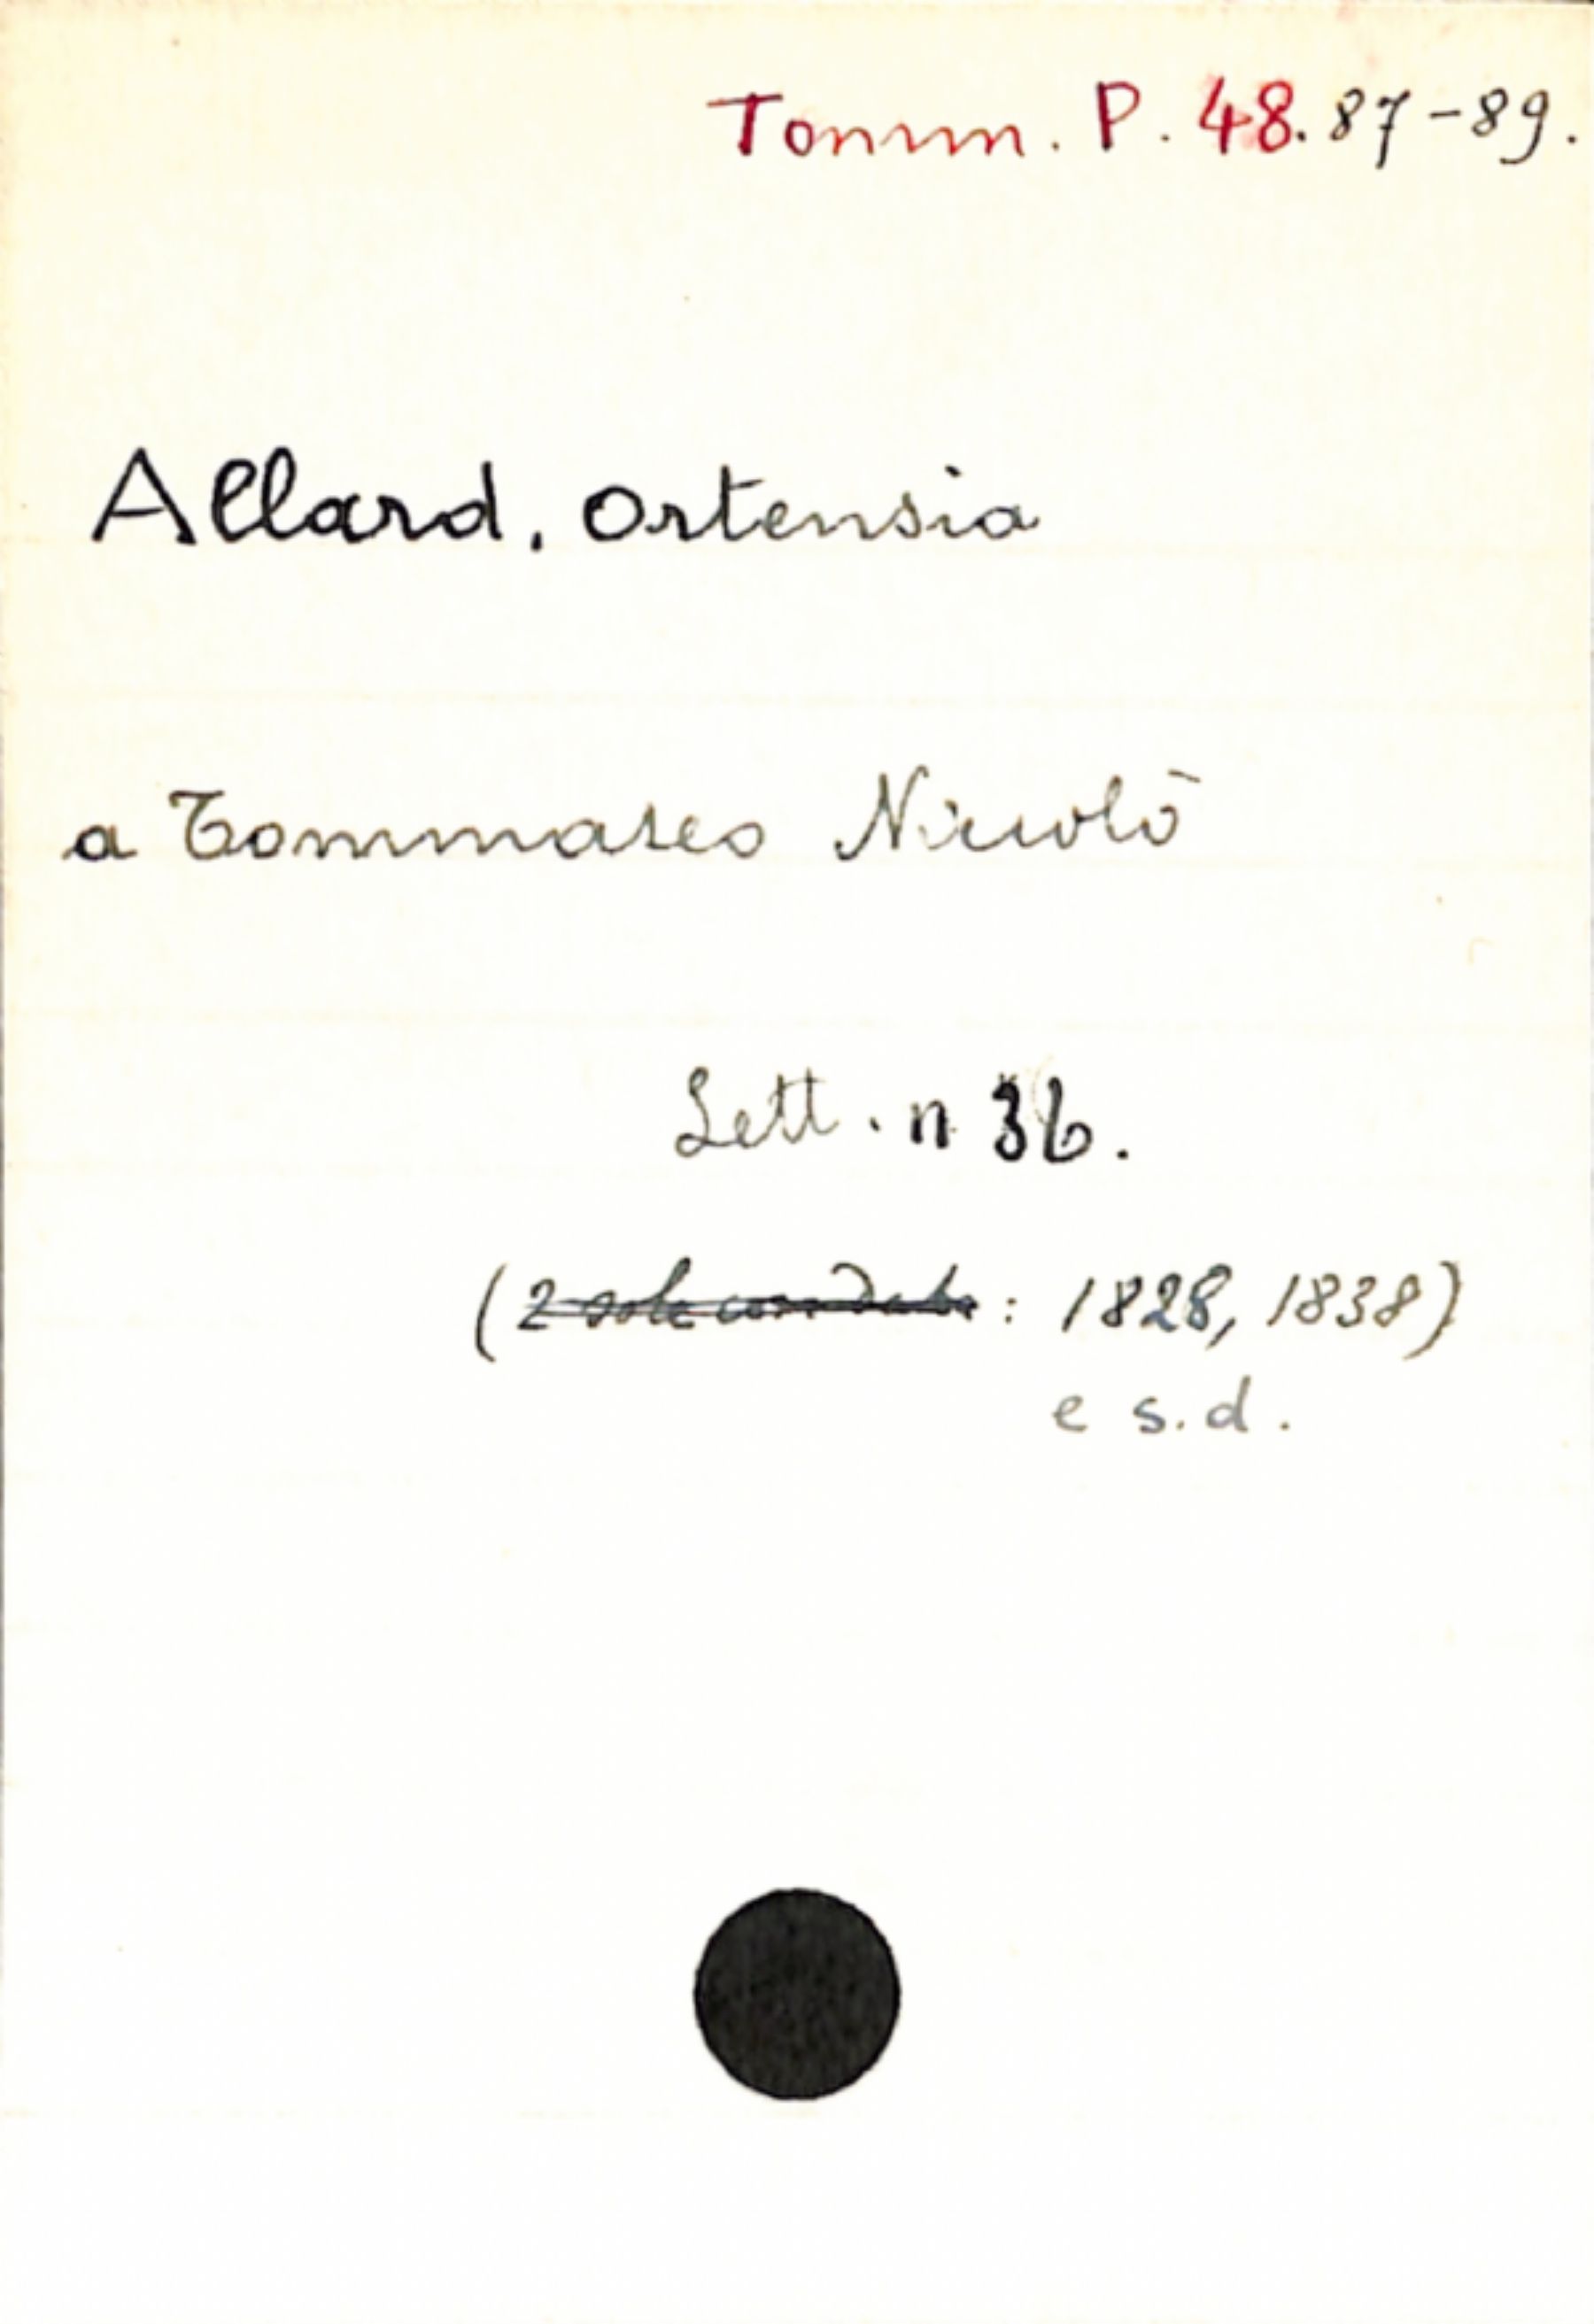 Tomm. P. 48. 87-89.
Allard, Ortensia
a Tommaseo Niccolò
Lett. n 36.
(2 sole con data: 1828, 1838)
e s.d.